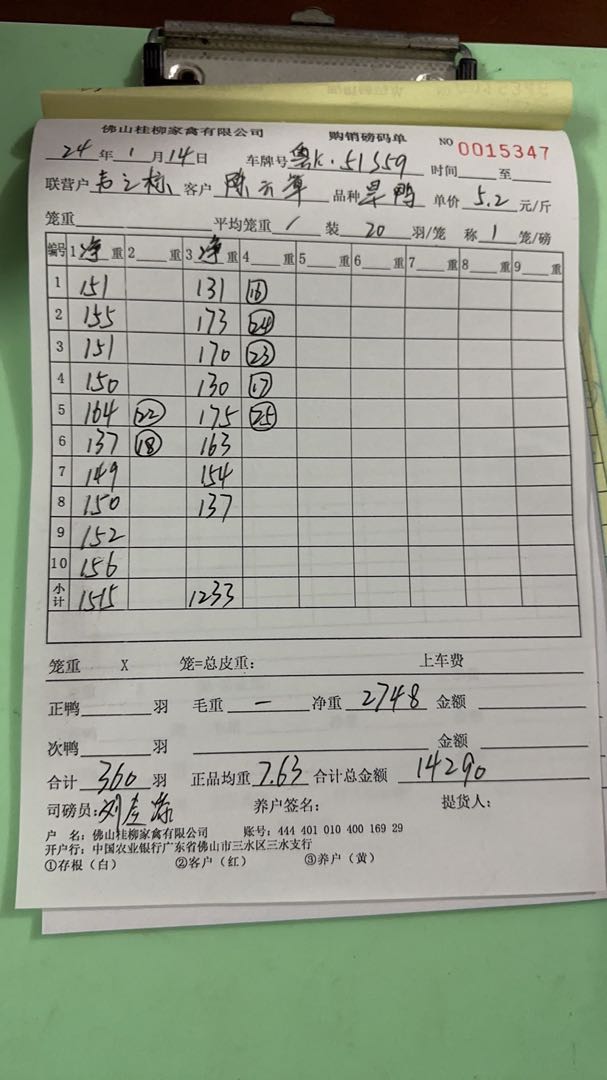 佛山桂柳家禽有限公司 购销磅码单 NO 0015347
24 年 1 月 14 日 车牌号 鲁K·51S59 时间 至
联营户 客户 陈云军 品种 旱鸭 单价 5.2 元/斤
笼重 平均笼重 / 装 20 羽/笼 称 1 笼/磅
编号 1 净 重 2 重 3 净 重 4 重 5 重 6 重 7 重 8 重 9 重
1 151 131 16
2 155 173 24
3 151 170 23
4 150 130 17
5 164 22 175 25
6 137 18 163
7 149 154
8 150 137
9 152
10 156
小计 1515 1233
笼重 X 笼=总皮重: 上车费
正鸭 羽 毛重 — 净重 2748 金额
次鸭 羽 金额
合计 360 羽 正品均重 7.63 合计总金额 14290
司磅员: 养户签名: 提货人:
户 名: 佛山桂柳家禽有限公司 账号: 444 401 010 400 169 29
开户行: 中国农业银行广东省佛山市三水区三水支行
①存根（白） ②客户（红） ③养户（黄）